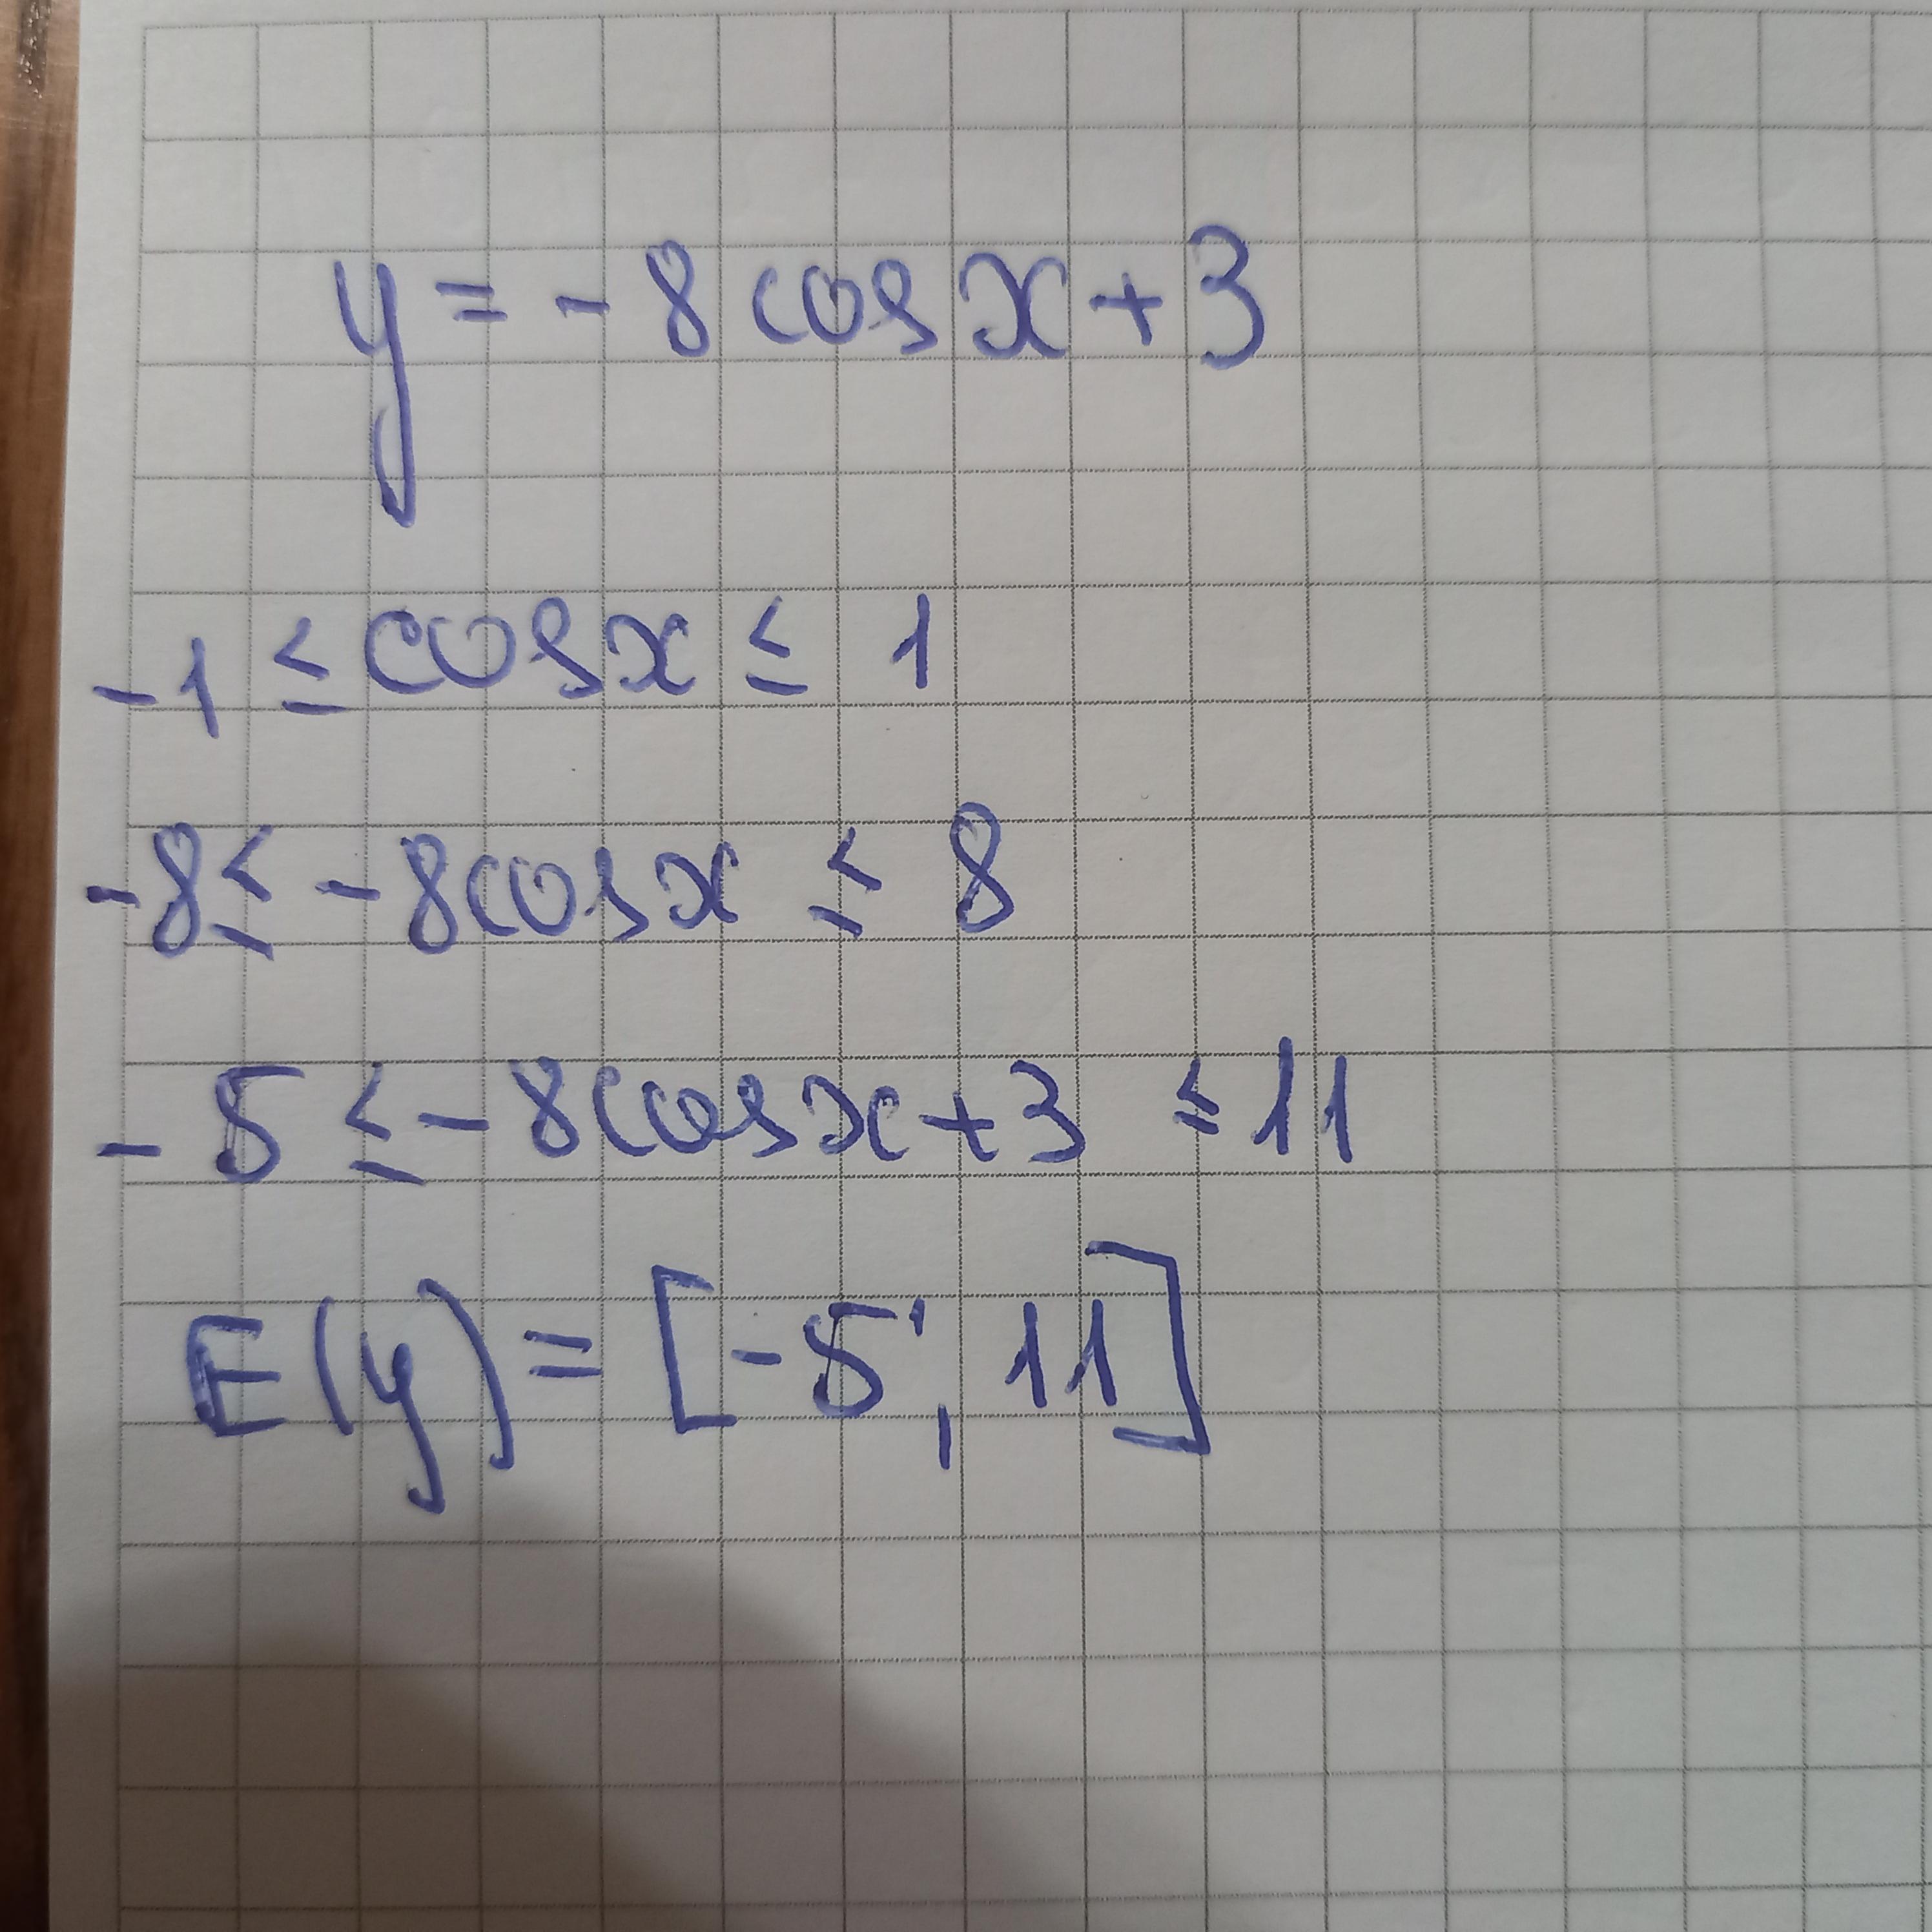 y = -8 cos x + 3
-1 ≤ cos x ≤ 1
-8 ≤ -8 cos x ≤ 8
-5 ≤ -8 cos x + 3 ≤ 11
E(y) = [-5; 11]